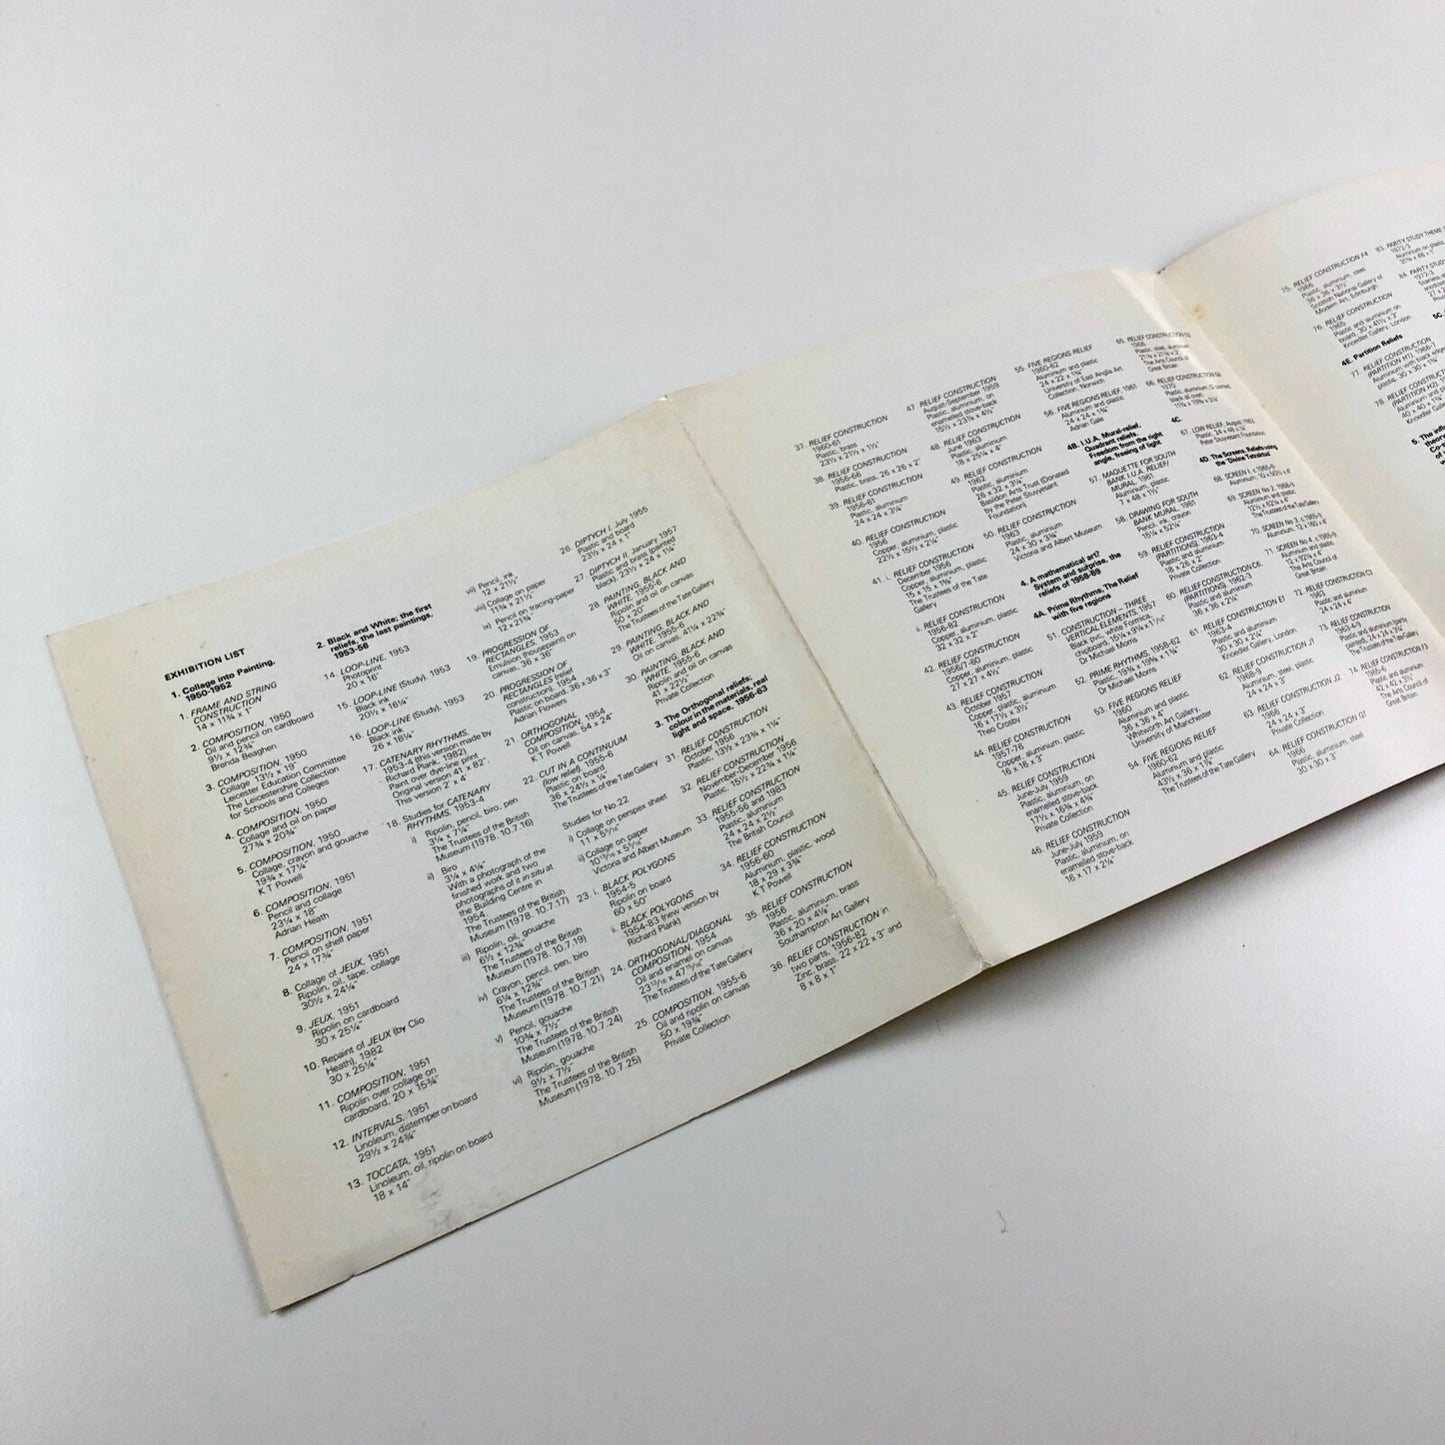 EXHIBITION LIST
1. Collage into Painting,
1950-1952
1. FRAME AND STRING
CONSTRUCTION
14 x 11¾ x 1"
2. COMPOSITION, 1950
Oil and pencil on cardboard
9½ x 12¾"
Brenda Beaghen
3. COMPOSITION, 1950
Collage 13½ x 19"
Leicester Education Committee
The Leicestershire Collection
for Schools and Colleges
4. COMPOSITION, 1950
Collage and oil on paper
27¾ x 20¾"
5. COMPOSITION, 1950
Collage, crayon and gouache
19¾ x 17¼"
K T Powell
6. COMPOSITION, 1951
Pencil and collage
23¼ x 18"
Adrian Heath
7. COMPOSITION, 1951
Pencil on shelf paper
24 x 17¾"
8. Collage of JEUX, 1951
Ripolin, oil, tape, collage
30½ x 24¼"
9. JEUX, 1951
Ripolin on cardboard
30 x 25¼"
10. Repaint of JEUX (by Clio
Heath), 1982
30 x 25¼"
11. COMPOSITION, 1951
Ripolin over collage on
cardboard, 20 x 15¾"
12. INTERVALS, 1951
Linoleum, distemper on board
29½ x 24¾"
13. TOCCATA, 1951
Linoleum, oil, ripolin on board
18 x 14"
2. Black and White; the first
reliefs, the last paintings.
1953-56
14. LOOP-LINE, 1953
Photoprint
20 x 16"
15. LOOP-LINE (Study), 1953
Black ink
20½ x 16¼"
16. LOOP-LINE (Study), 1953
Black ink
26 x 18¼"
17. CATENARY RHYTHMS,
1953-4 (this version made by
Richard Plank, 1982)
Paint over dye-line print
Original version 41 x 82".
This version 2" x 4"
18. Studies for CATENARY
RHYTHMS, 1953-4
i) Ripolin, pencil, biro, pen
3¼ x 7¼"
The Trustees of the British
Museum (1978. 10.7.16)
ii) Biro
3¼ x 4¼"
With a photograph of the
finished work and two
photographs of it in situ at
the Building Centre in
1954.
The Trustees of the British
Museum (1978. 10.7.17)
iii) Ripolin, oil, gouache
6½ x 12¾"
The Trustees of the British
Museum (1978. 10.7.19)
iv) Crayon, pencil, pen, biro
6¼ x 12¾"
The Trustees of the British
Museum (1978. 10.7.21)
v) Pencil, gouache
10¾ x 7½"
The Trustees of the British
Museum (1978. 10.7.24)
vi) Ripolin, gouache
9½ x 7½"
The Trustees of the British
Museum (1978. 10.7.25)
vii) Pencil, ink
12 x 21½"
viii) Collage on paper
11¾ x 21½"
ix) Pencil on tracing-paper
12 x 21¾"
19. PROGRESSION OF
RECTANGLES, 1953
Emulsion (housepaint) on
canvas, 36 x 36"
20. PROGRESSION OF
RECTANGLES (relief
construction), 1954
Plastic on board, 36 x 36 x 3"
Adrian Flowers
21. ORTHOGONAL
COMPOSITION, 1954
Oil on canvas, 54 x 24"
K T Powell
22. CUT IN A CONTINUUM
(low relief), 1955-6
Plastic on board,
36 x 24½ x ¼"
The Trustees of the Tate Gallery
Studies for No 22
i) Collage on penpex sheet
11 x 5¹⁄₁₆"
ii) Collage on paper
10¹³⁄₁₆ x 5¹⁄₁₆"
Victoria and Albert Museum
23. i. BLACK POLYGONS
1954-5
Ripolin on board
60 x 50"
ii. BLACK POLYGONS
1954-83 (new version by
Richard Plank)
24. ORTHOGONAL/DIAGONAL
COMPOSITION, 1954
Oil and enamel on canvas
23¹³⁄₁₆ x 47¹⁵⁄₁₆"
The Trustees of the Tate Gallery
25. COMPOSITION, 1955-6
Oil and ripolin on canvas
50 x 19¾"
Private Collection
26. DIPTYCH I. July, 1955
Plastic and board
23½ x 24 x 1"
27. DIPTYCH II. January 1957
Plastic and brass (painted
black), 23½ x 24 x 1¼"
28. PAINTING, BLACK AND
WHITE, 1955-6
Ripolin and oil on canvas
50 x 20"
The Trustees of the Tate Gallery
29. PAINTING, BLACK AND
WHITE, 1955-6
Oil on canvas, 41¼ x 22¾"
30. PAINTING, BLACK AND
WHITE, 1955-6
Ripolin and oil on canvas
41 x 21½"
Private Collection
3. The Orthogonal reliefs;
colour in the materials, real
light and space, 1956-63
31. RELIEF CONSTRUCTION
October 1956
Plastic, 13½ x 23¾ x 1¼"
32. RELIEF CONSTRUCTION
November-December, 1956
Plastic, 15½ x 22¾ x 1¼"
33. RELIEF CONSTRUCTION
1955-56 and 1983
Plastic, aluminium
24 x 24 x 2½"
The British Council
34. RELIEF CONSTRUCTION
1956-60
Aluminium, plastic, wood
18 x 29 x 3¾"
K T Powell
35. RELIEF CONSTRUCTION
1956
Plastic, aluminium, brass
36 x 20 x 4⅛"
Southampton Art Gallery
36. RELIEF CONSTRUCTION in
two parts, 1956-82
Zinc, brass, 22 x 22 x 3" and
8 x 8 x 1"
37. RELIEF CONSTRUCTION
1960-61
Plastic, brass
23½ x 21½ x 1½"
38. RELIEF CONSTRUCTION
1956-66
Plastic, brass, 26 x 26 x 2"
39. RELIEF CONSTRUCTION
1956-61
Plastic, aluminium
24 x 24 x 3¼"
40. RELIEF CONSTRUCTION
1956
Copper, aluminium, plastic
22½ x 15½ x 2¼"
41. i. RELIEF CONSTRUCTION
December 1956
Copper, aluminium, plastic
15 x 15 x 1⅝"
The Trustees of the Tate
Gallery
ii. RELIEF CONSTRUCTION
1956-82
Copper, aluminium, plastic
2" x 2"
42. RELIEF CONSTRUCTION
1956/7-60
Copper, aluminium, plastic
27 x 27 x 4½"
43. RELIEF CONSTRUCTION
October 1957
Copper, plastic, aluminium
16 x 17½ x 3½"
Theo Crosby
44. RELIEF CONSTRUCTION
1957-76
Copper, aluminium, plastic
16 x 16 x 3"
45. RELIEF CONSTRUCTION
June-July, 1959
Plastic, aluminium, on
enamelled stove-back
17½ x 16¾ x 4¾"
Private Collection
46. RELIEF CONSTRUCTION
June-July, 1959
Plastic, aluminium, on
enamelled stove-back
16 x 17 x 2¼"
47. RELIEF CONSTRUCTION
August-September 1959
Plastic, aluminium, on
enamelled stove-back
15½ x 23¾ x 4½"
48. RELIEF CONSTRUCTION
June 1963
Plastic, aluminium
18 x 25¼ x 4"
49. RELIEF CONSTRUCTION
1962
Plastic, aluminium
26 x 32 x 3¼"
Basildon Arts Trust (Donated
by the Peter Stuyvesant
Foundation)
50. RELIEF CONSTRUCTION
1963
Plastic, aluminium
24 x 30 x 3¾"
Victoria and Albert Museum
4. A mathematical art?
System and surprise, the
reliefs of 1958-69
4A. Prime Rhythms; The Relief
with five regions
51. CONSTRUCTION – THREE
VERTICAL ELEMENTS, 1957
Black pvc, white Formica,
chipboard
Dr Michael Morris
52. PRIME RHYTHMS, 1958-62
Plastic, 19¾ x 19¾ x 1¾"
Dr Michael Morris
53. FIVE REGIONS RELIEF
1960
Aluminium and plastic
36 x 36 x 4"
Whitworth Art Gallery,
University of Manchester
54. FIVE REGIONS RELIEF
1960-62
43½ x 36 x 1⅞"
The Trustees of the Tate Gallery
55. FIVE REGIONS RELIEF
1960-62
Aluminium and plastic
24 x 22 x 1¾"
University of East Anglia Art
Collection, Norwich
56. FIVE REGIONS RELIEF, 1961
Aluminium and plastic
24 x 24 x 1¾"
Adrian Gale
4B. I.U.A. Mural-relief.
Quadrant reliefs.
Freedom from the right
angle, freeing of light
57. MAQUETTE FOR SOUTH
BANK I.U.A. RELIEF/
MURAL, 1961
Aluminium, plastic
7 x 48 x 1½"
58. DRAWING FOR SOUTH
BANK MURAL, 1961
Pencil, ink, crayon
15¼ x 52¼"
59. RELIEF CONSTRUCTION
(PARTITIONS), 1963-4
Plastic and aluminium
18 x 26 x 2"
Private Collection
60. RELIEF CONSTRUCTION C6
(PARTITIONS), 1962-3
Plastic and aluminium
36 x 36 x 2¼"
61. RELIEF CONSTRUCTION E1
1963-4
Plastic and aluminium
30 x 30 x 2¼"
Knoedler Gallery, London
62. RELIEF CONSTRUCTION J1
1968-9
Aluminium, steel, plastic
24 x 24 x 3"
63. RELIEF CONSTRUCTION J2
1966
24 x 24 x 3"
Private Collection
64. RELIEF CONSTRUCTION G7
1966
Plastic, aluminium, steel
30 x 30 x 3"
65. RELIEF CONSTRUCTION
1966
Plastic, steel, aluminium
The Arts Council of
Great Britain
66. RELIEF CONSTRUCTION
1970
Plastic, aluminium, (2 pieces)
black all over,
4C.
67. LOW RELIEF, August 1963
Plastic, 24 x 48 x ¼"
Peter Stuyvesant Foundation
4D. The Screens; Reliefs using
the 'Divine Tetraktus'
68. SCREEN 1, c 1965-9
Aluminium, 10 x 50½ x 4"
69. SCREEN No 2, 1968-9
Aluminium and plastic
12½ x 62¼ x 4"
The Trustees of the Tate Gallery
70. SCREEN No 3, c 1965-9
Aluminium, 12 x 160 x 8"
71. SCREEN No 4, c 1965-9
Aluminium and plastic
12 x 92¾ x 4"
The Arts Council of
Great Britain
72. RELIEF CONSTRUCTION C3
1963
Plastic and aluminium
24 x 24 x 4"
73. RELIEF CONSTRUCTION
Plastic and aluminium (partly
painted),
74. RELIEF CONSTRUCTION F3
Aluminium and plastic
42 x 42 x 3½"
The Arts Council of
Great Britain
75. RELIEF CONSTRUCTION F4
1966
Plastic, aluminium, steel
36 x 36 x 3½"
Scottish National Gallery of
Modern Art, Edinburgh
76. RELIEF CONSTRUCTION
1965
Plastic and aluminium on
board, 30 x 41½ x 3"
Knoedler Gallery, London
4E. Partition Reliefs
77. RELIEF CONSTRUCTION
(PARTITION H1), 1966-7
Aluminium with black edges,
plastic, 30 x 30 x 1¾"
78. RELIEF CONSTRUCTION
(PARTITION H2),
Aluminium and plastic
40 x 40 x 1¾"
Knoedler
5. The
83. PARITY STUDY THEME
1972-3
Aluminium on plastic
31¾ x 48 x 1"
84. PARITY STUDY
1972-3
5C.